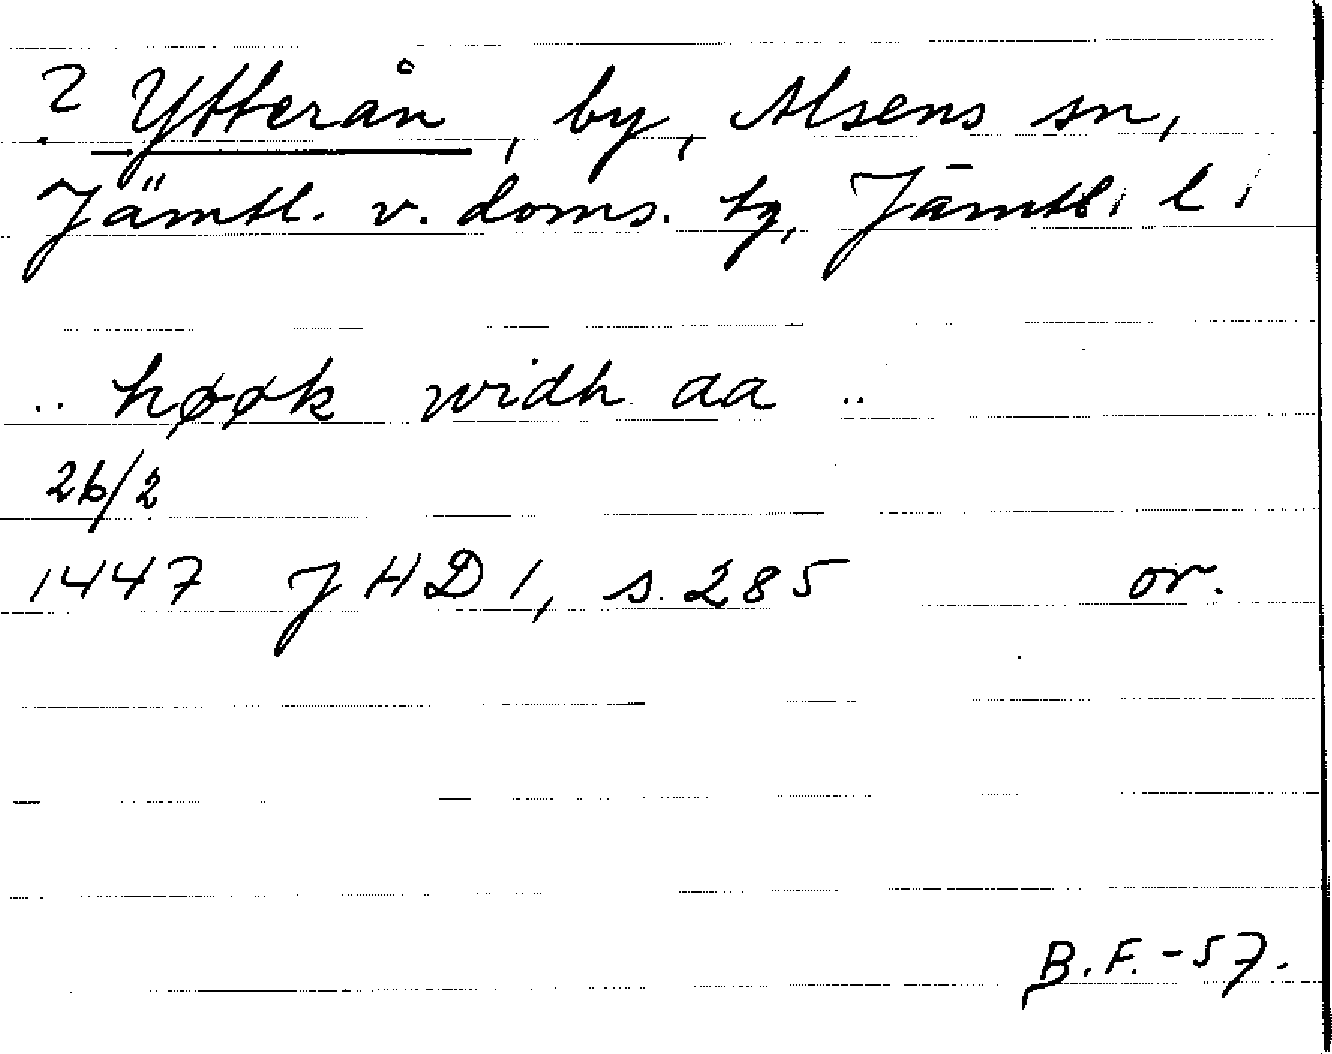 ? Ytterån, by, Alsens sn,
Jämtl. v. doms. tg, Jämtl. l.
.. høøk widh aa ..
26/2
1447 JHD 1, s. 285 or.
B.F. -57.